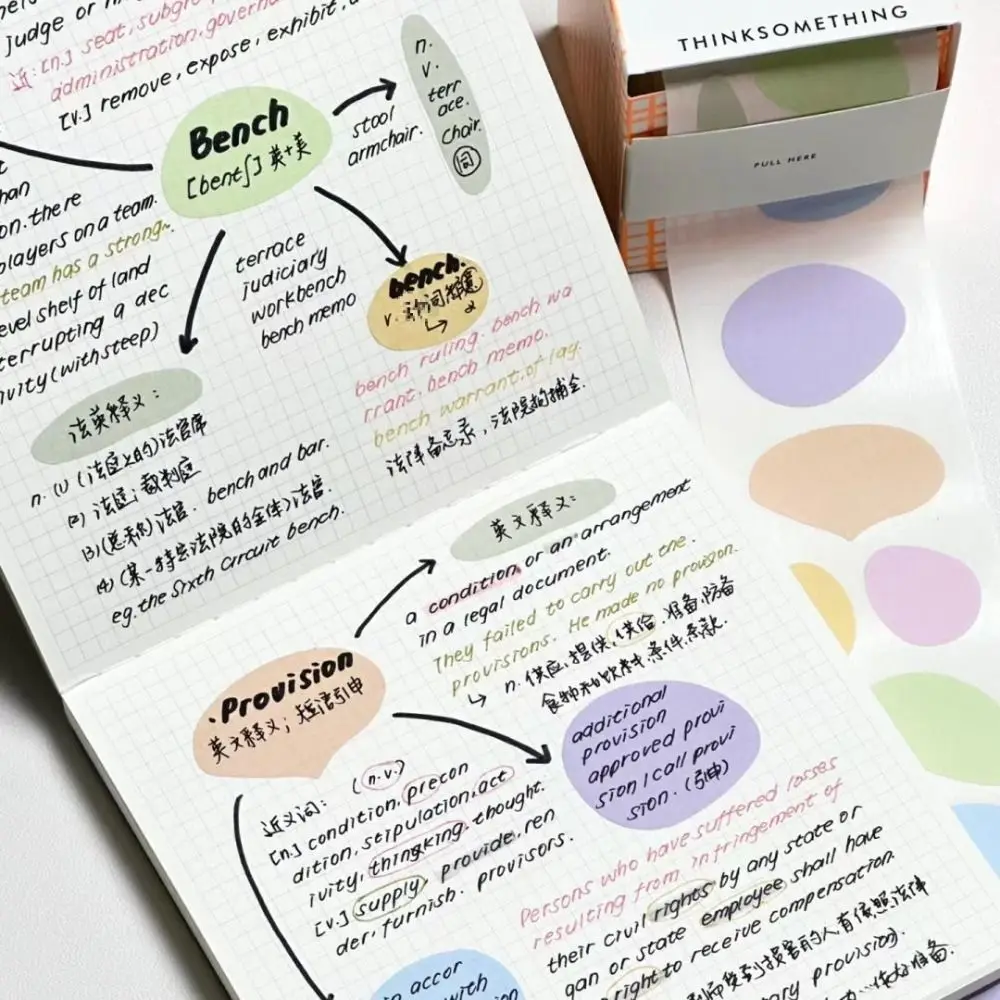 judge or
近: [n.] seat, subgro
administration, govern
[v.] remove, expose, exhibit,
Bench
[bentʃ] 英+美
stool
armchair.
n.
v.
terr
ace.
chair.
词
han
on. there
players on a team.
team has a strong~
evel shelf of land
terrupting a dec
ivity (with steep)
terrace
judiciary
workbench
bench memo
bench.
v. 动词
bench ruling. bench wa
rrant. bench memo.
bench warrant. of lay.
法律备忘录, 法院拘捕全.
法英释义:
n. (1) (法庭上的) 法官席
(2) 法庭; 裁判庭
(3) (总称) 法官. bench and bar.
(4) (某一特定法院的全体) 法官.
eg. the Sixth Circuit bench.
英文释义:
a condition or an arrangement
in a legal document.
They failed to carry out the
provisions. He made no provision.
n. 供应, 提供, 供给. 准备, 防备
食物和饮料, 条件, 条款.
.Provision
英文释义; 短语引申
additional
provision
approved provi
sion / call provi
sion. (引申)
近义词: (n.v.)
[n.] condition, precon
dition, stipulation, act
ivity, thingking, thought.
[v.] supply, provide, ren
der, furnish. provisors.
Persons who have suffered losses
resulting from infringement of
their civil rights by any state or
gan or state employee shall have
right to receive compensation.
而受到损害的人, 有依照法律
ary provision.
作好准备.
in accor
with
THINKSOMETHING
PULL HERE